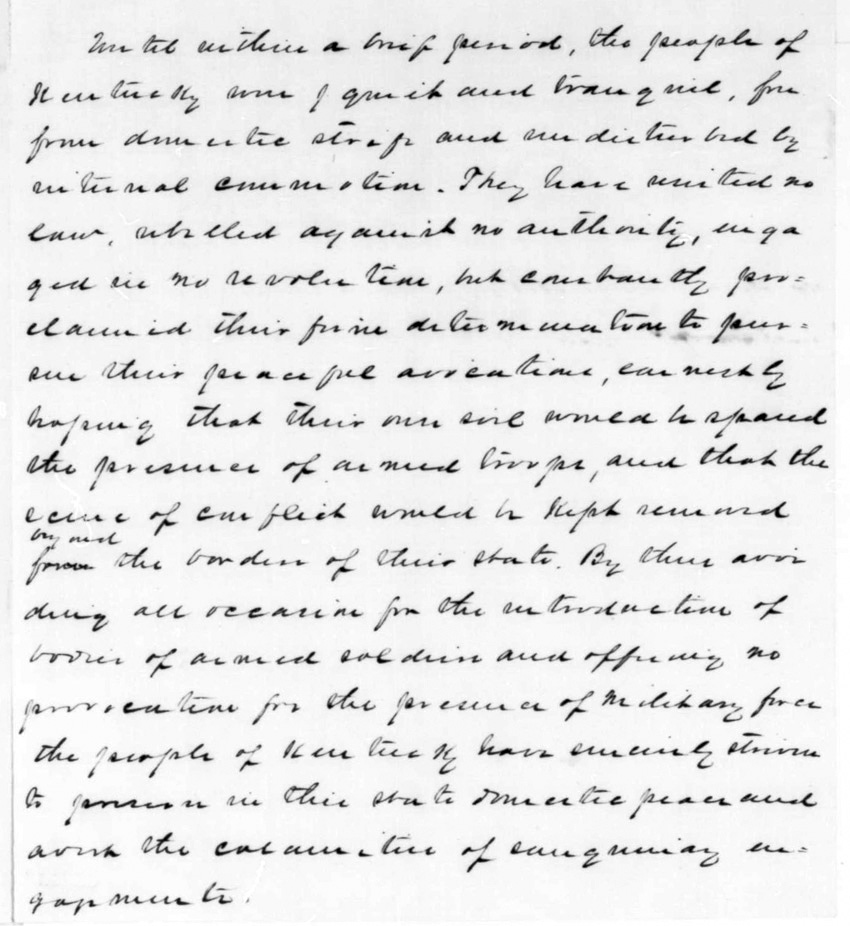 Until within a brief period, the people of
Kentucky were quiet and tranquil, free
from domestic strife and undisturbed by
internal commotion. They have resisted no
law, rebelled against no authority, enga
ged in no revolution, but constantly pro=
claimed their firm determination to pur=
sue their peaceful avocations, earnestly
hoping that their own soil would be spared
the presence of armed troops, and that the
scene of conflict would be kept removed
beyond
from the borders of their state. By thus avoi
ding all occasion for the introduction of
bodies of armed soldiers and offering no
provocation for the presence of military force
the people of Kentucky have sincerely striven
to preserve in their state domestic peace and
avert the calamities of sanguinary en=
gagements.